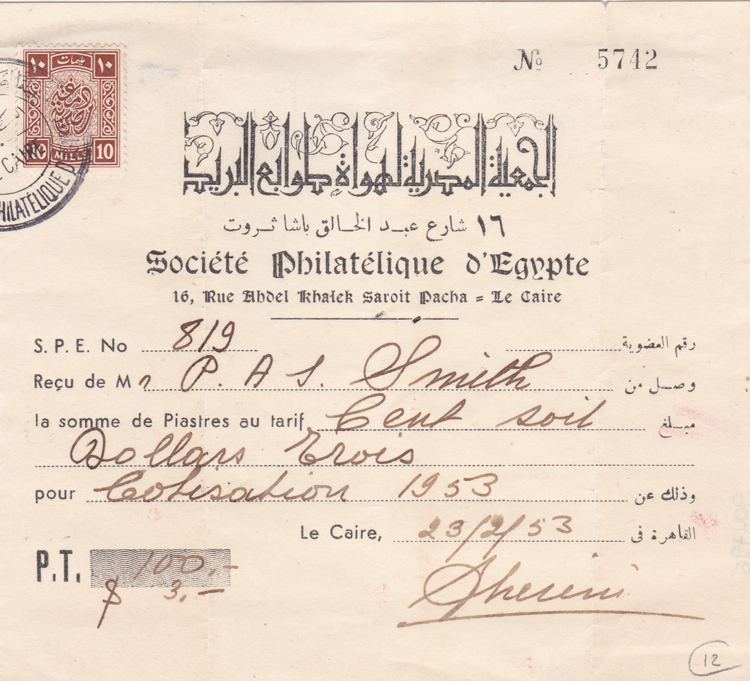 № 5742
١٠ مليمات ١٠
10 MILLS 10
CAIR
PHILATÉLIQUE D'
الجمعية المصرية لهواة طوابع البريد
١٦ شارع عبد الخالق باشا ثروت
Société Philatélique d'Egypte
16, Rue Abdel Khalek Saroit Pacha = Le Caire
S. P. E. No 819 رقم العضوية
Reçu de Mr P. A S. Smith وصل من
la somme de Piastres au tarif Cent soit مبلغ
Dollars Trois
pour Cotisation 1953 وذلك عن
Le Caire, 23/2/53 القاهرة فى
P.T. 100.-
$ 3.-
12